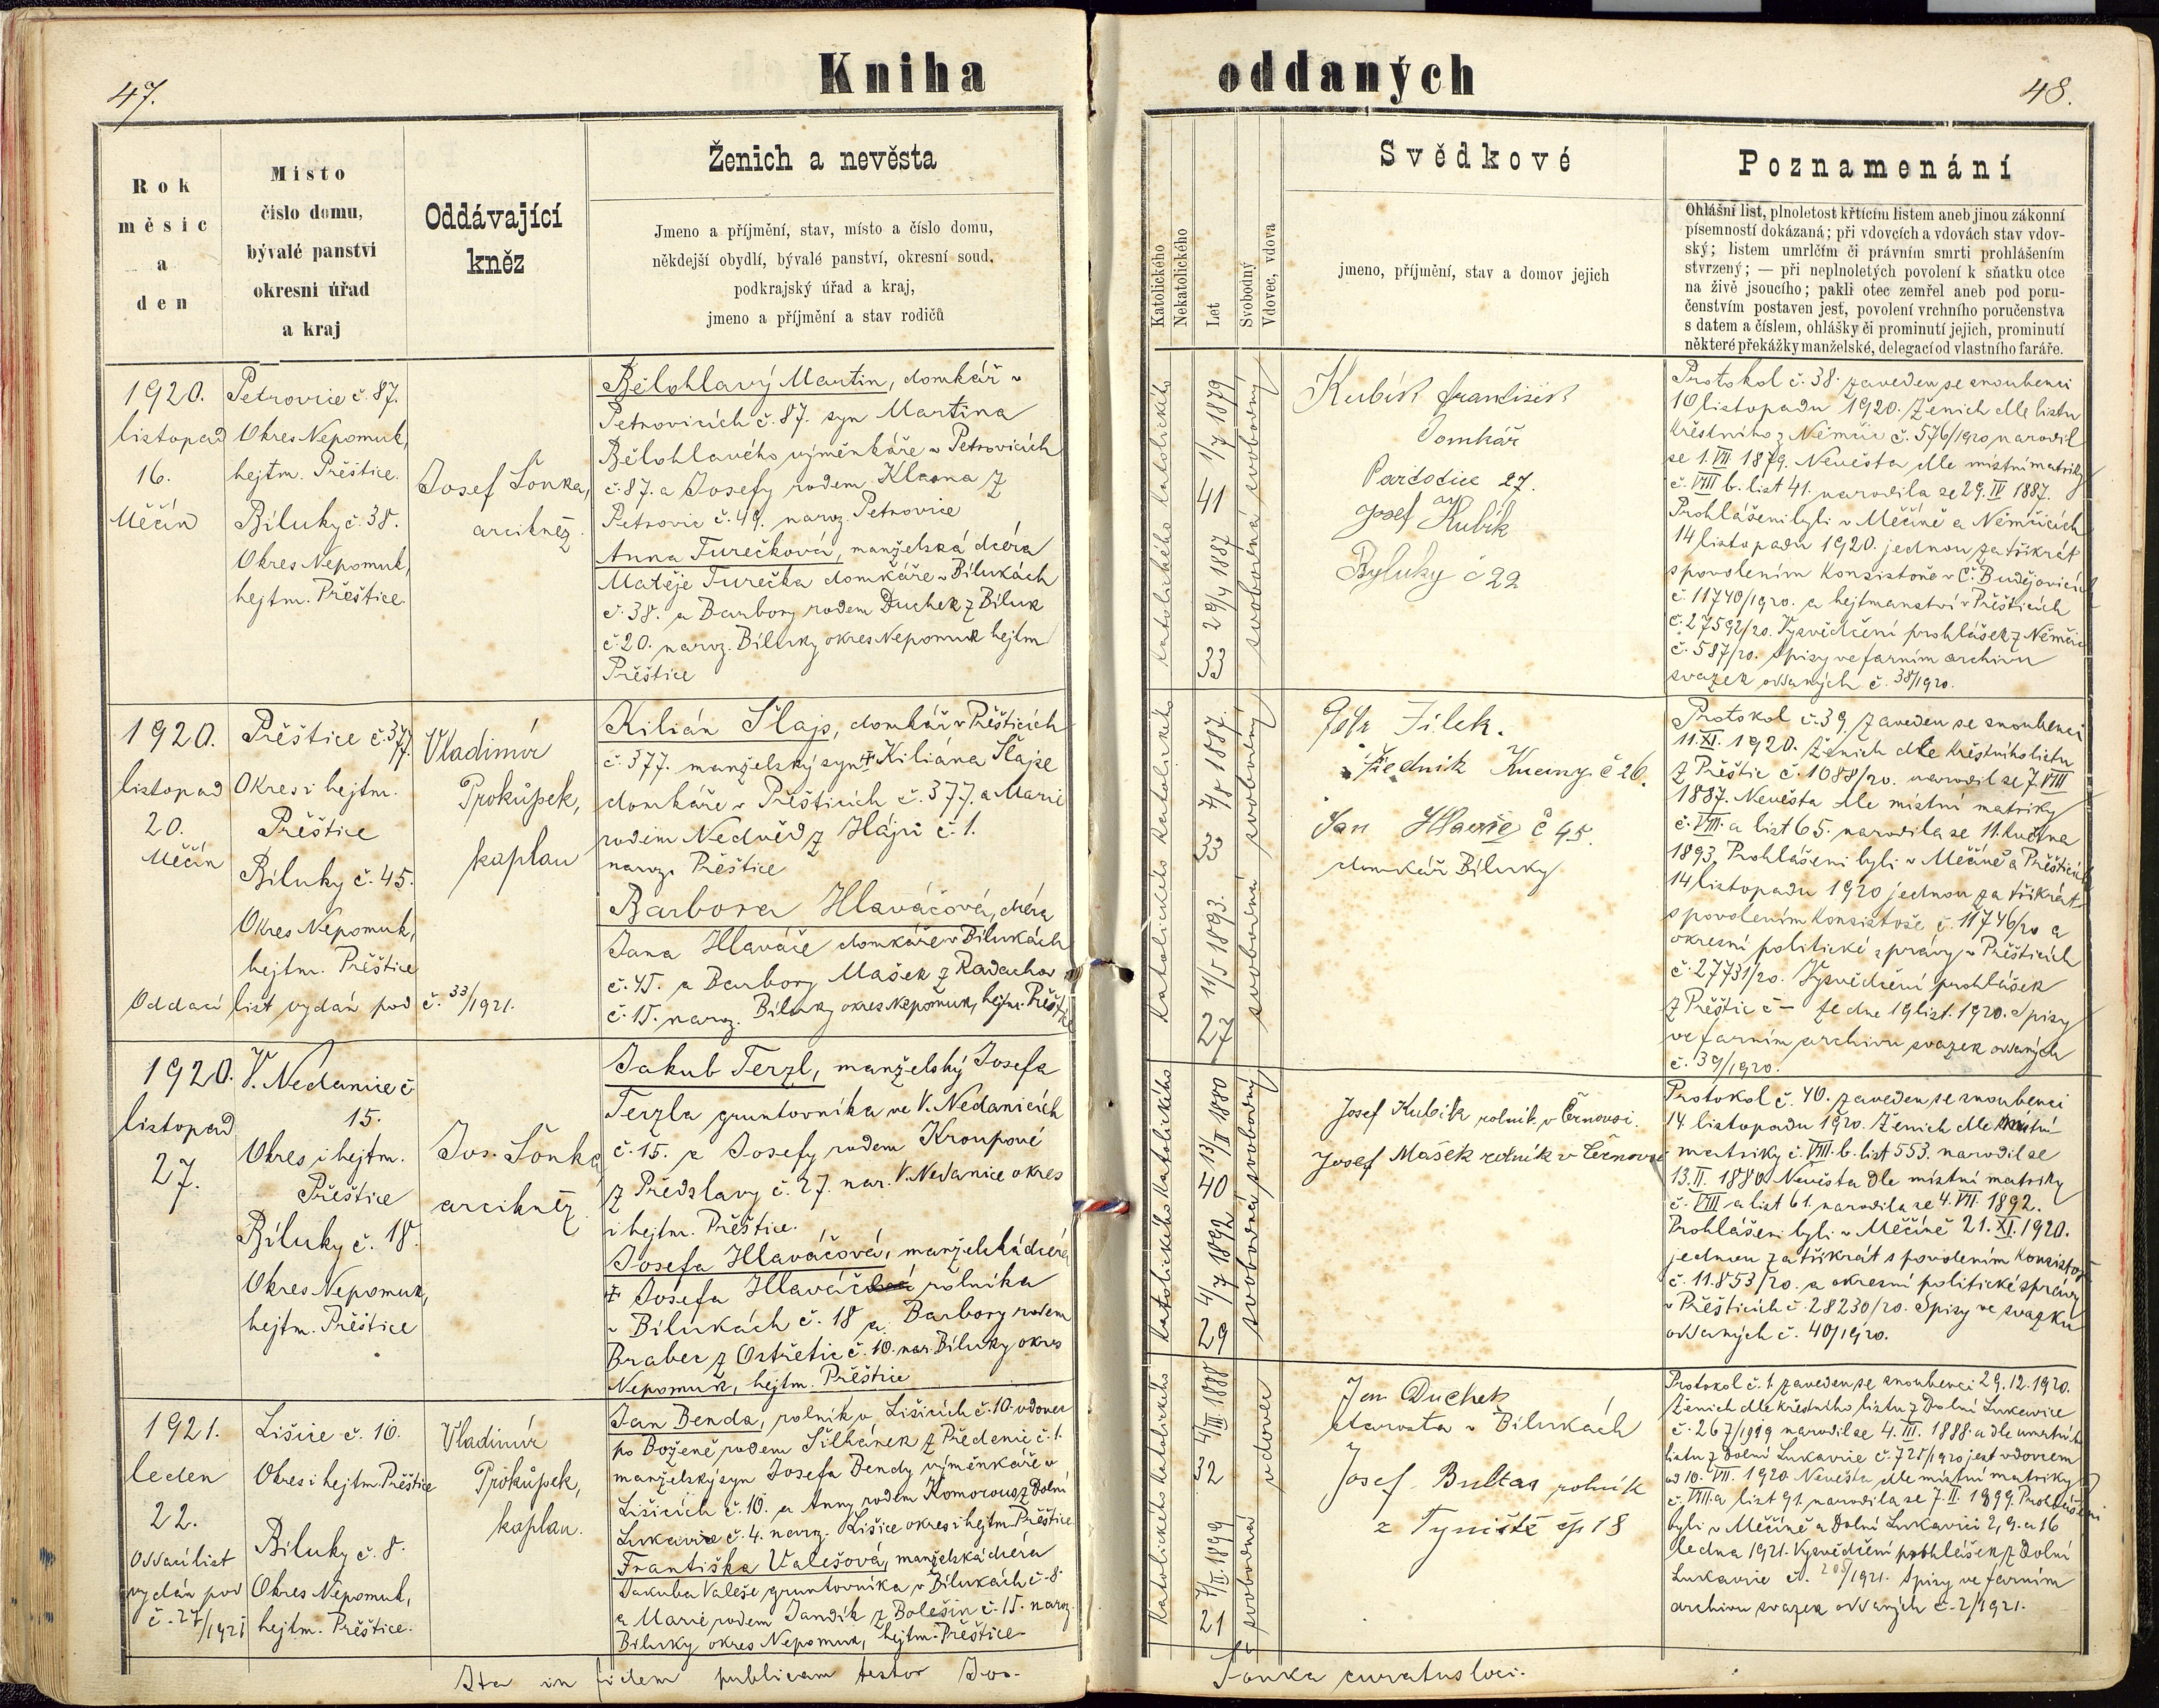 Kniha
oddaných
47.
48.
Rok
měsíc
a
den
Místo
číslo domu,
bývalé panství
okresní úřad
a kraj
Oddávající
kněz
Ženich a nevěsta
Jmeno a příjmění, stav, místo a číslo domu,
někdejší obydlí, bývalé panství, okresní soud,
podkrajský úřad a kraj,
jmeno a příjmění a stav rodičů
Katolického
Nekatolického
Let
Svobodný
Vdovec, vdova
Svědkové
jmeno, příjmění, stav a domov jejich
Poznamenání
Ohlášní list, plnoletost křticím listem aneb jinou zákonní
písemností dokázaná; při vdovcích a vdovách stav vdov-
ský; listem umrlčím či právním smrti prohlášením
stvrzený; — při neplnoletých povolení k sňatku otce
na živě jsoucího; pakli otec zemřel aneb pod poru-
čenstvím postaven jest, povolení vrchního poručenstva
s datem a číslem, ohlášky či prominutí jejich, prominutí
některé překážky manželské, delegací od vlastního faráře.
1920.
listopad
16.
Měčín
Petrovice č. 87.
Okres Nepomuk,
hejtm. Přeštice.
Bíluky č. 38.
Okres Nepomuk,
hejtm. Přeštice.
Josef Šonka,
arcikněz
Bělohlavý Martin, domkář v
Petrovicích č. 87. syn Martina
Bělohlavého výměnkáře v Petrovicích
č. 87. a Josefy rodem Klasna z
Petrovic č. 49. naroz. Petrovice
Anna Turečková, manželská dcera
Matěje Turečka domkáře v Bílukách
č. 38. a Barbory rodem Duchek z Bíluk
č. 20. naroz. Bíluky okres Nepomuk hejtm
Přeštice
katolického katolického
41 1/7 1879
33 29/4 1887
svobodná svobodný
Kubík František
Domkář
27.
a
Josef Kubík
Byluky č 22
Protokol č. 38. zaveden se snoubenci
10 listopadu 1920. Ženich dle listu
křestního z Němčic č. 576/1920 narodil
se 1. VII 1879. Nevěsta dle místní matriky
č. VIII b. list 41. narodila se 29. IV 1887.
Prohlášeni byli v Měčíně a Němčicích
14 listopadu 1920. jednou za třikrát
s povolením Konsistoře v Č. Budějovicích
č. 11740/1920. a hejtmanství v Přešticích
č. 27592/20. Vysvědčení prohlášek z Němčic
č. 587/20. Spisy ve farním archivu
svazek oddaných č. 38/1920.
1920.
listopad
20.
Měčín
Přeštice č. 377.
Okres i hejtm.
Přeštice
Bíluky č. 45.
Okres Nepomuk,
hejtm. Přeštice
Oddací list vydán pod č. 33/1921.
Vladimír
Prokůpek,
kaplan
Kilián Šlajs, domkář v Přešticích
č. 377. manželský syn † Kiliána Šlajse
domkáře v Přešticích č. 377. a Marie
rodem Nedvěd z Hájů č. 1.
naroz. Přeštice
Barbora Hlaváčová, dcera
Jana Hlaváče domkáře v Bílukách
č. 45. a Barbory Mašek z Radachov
č. 15. naroz. Bíluky okres Nepomuk, hejtm. Přeštice
katolického katolického
33 7/8 1887.
27 11/5 1893.
svobodná svobodný
Jílek.
Kucíny č 26.
Jan č 45.
domkář Bíluky
Protokol č. 39. zaveden se snoubenci
11. XI. 1920. Ženich dle křestního listu
z Přeštic č. 1088/20. narodil se 7. VIII
1887. Nevěsta dle místní matriky
č. VIII. a list 65. narodila se 11. května
1893. Prohlášeni byli v Měčíně a Přešticích
14 listopadu 1920 jednou za třikrát
s povolením Konsistoře č. 11746/20 a
okresní politické správy v Přešticích
č. 27731/20. Vysvědčení prohlášek
z Přeštic č — ze dne 19 list. 1920. Spisy
ve farním archivu svazek oddaných
č. 39/1920.
1920.
listopad
27.
V. Nedanice č
15.
Okres i hejtm.
Přeštice
Bíluky č. 18.
Okres Nepomuk,
hejtm. Přeštice
Jos. Šonka
arcikněz
Jakub Terzl, manželský Josefa
Terzla gruntovníka ve V. Nedanicích
č. 15. a Josefy rodem Kroupové
z Předslavy č. 27. nar. V. Nedanice okres
i hejtm. Přeštice.
Josefa Hlaváčová, manželská dcera
† Josefa Hlaváče rolníka
v Bílukách č. 18 a Barbory rodem
Braber z Ostřetic č. 10. nar. Bíluky okres
Nepomuk, hejtm. Přeštice
katolického katolického
40 13/II 1880
29 4/7 1892
svobodná svobodný
Josef Kubík rolník v Černovsi.
Josef Mašek rolník v Černovsi
Protokol č. 40. zaveden se snoubenci
14 listopadu 1920. Ženich dle místní
matriky č. VIII. b. list 553. narodil se
13. II. 1880. Nevěsta dle místní matriky
č. VIII a list 61. narodila se 4. VII. 1892.
Prohlášeni byli v Měčíně 21. XI. 1920.
jednou za třikrát s povolením Konsistoř
č. 11.853/20. a okresní politické správy
v Přešticích č. 28230/20. Spisy ve svazku
oddaných č. 40/1920.
1921.
leden
22.
Oddací list
vydán pod
č. 27/1921
Lišice č. 10.
Okres i hejtm. Přeštice
Bíluky č. 8.
Okres Nepomuk,
hejtm. Přeštice.
Vladimír
Prokůpek,
kaplan.
Jan Benda, rolník v Lišicích č. 10. vdovec
po Boženě rodem Šilhánek z Předenic č. 1.
manželský syn Josefa Bendy výměnkáře v
Lišicích č. 10. a Anny rodem Komorous z Dolní
Lukavice č. 4. naroz. Lišice okres i hejtm. Přeštice
Františka Valešová, manželská dcera
Jakuba Valeše gruntovníka v Bílukách č. 8.
a Marie rodem Jandík z Bolešin č. 15. naroz.
Bíluky okres Nepomuk, hejtm. Přeštice
katolického katolického
32 4/III 1888
21 7/II. 1899
svobodná vdovec
Jan Duchek
starosta v Bílukách
Josef Bultas rolník
z Týniště čp 18
Protokol č. 1. zaveden se snoubenci 29. 12. 1920.
Ženich dle křestního listu z Dolní Lukavice
č. 267/1919 narodil se 4. III. 1888. a dle úmrtního
listu z Dolní Lukavice č. 725/1920 jest vdovcem
od 10. VII. 1920. Nevěsta dle místní matriky
č. VIII. a list 91. narodila se 7. II. 1899. Prohlášeni
byli v Měčíně a Dolní Lukavici 2, 9. a 16
ledna 1921. Vysvědčení prohlášek z Dolní
Lukavice č. /1921. Spisy ve farním
archivu svazek oddaných č. 2/1921.
Ita in fidem publicam testor Jos.
Šonka curatus loci.